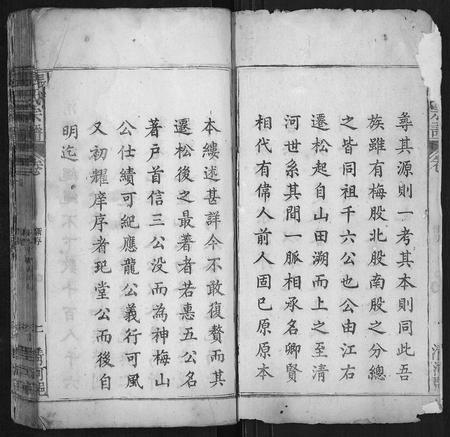 彞其源則一考其本則同此吾
族雖有梅股北股南股之分總
之皆同祖千六公也公由江右
遷松起自山田溯而上之至清
河世系其間一脈相承名卿賢
相代有偉人前人固已原原本
本縷述甚詳今不敢復贅而其
遷松後之最著者若惠五公名
著戸首信三公没而為神梅山
公仕績可紀應龍公義行可風
又初耀庠序者玘堂公而後自
明迄